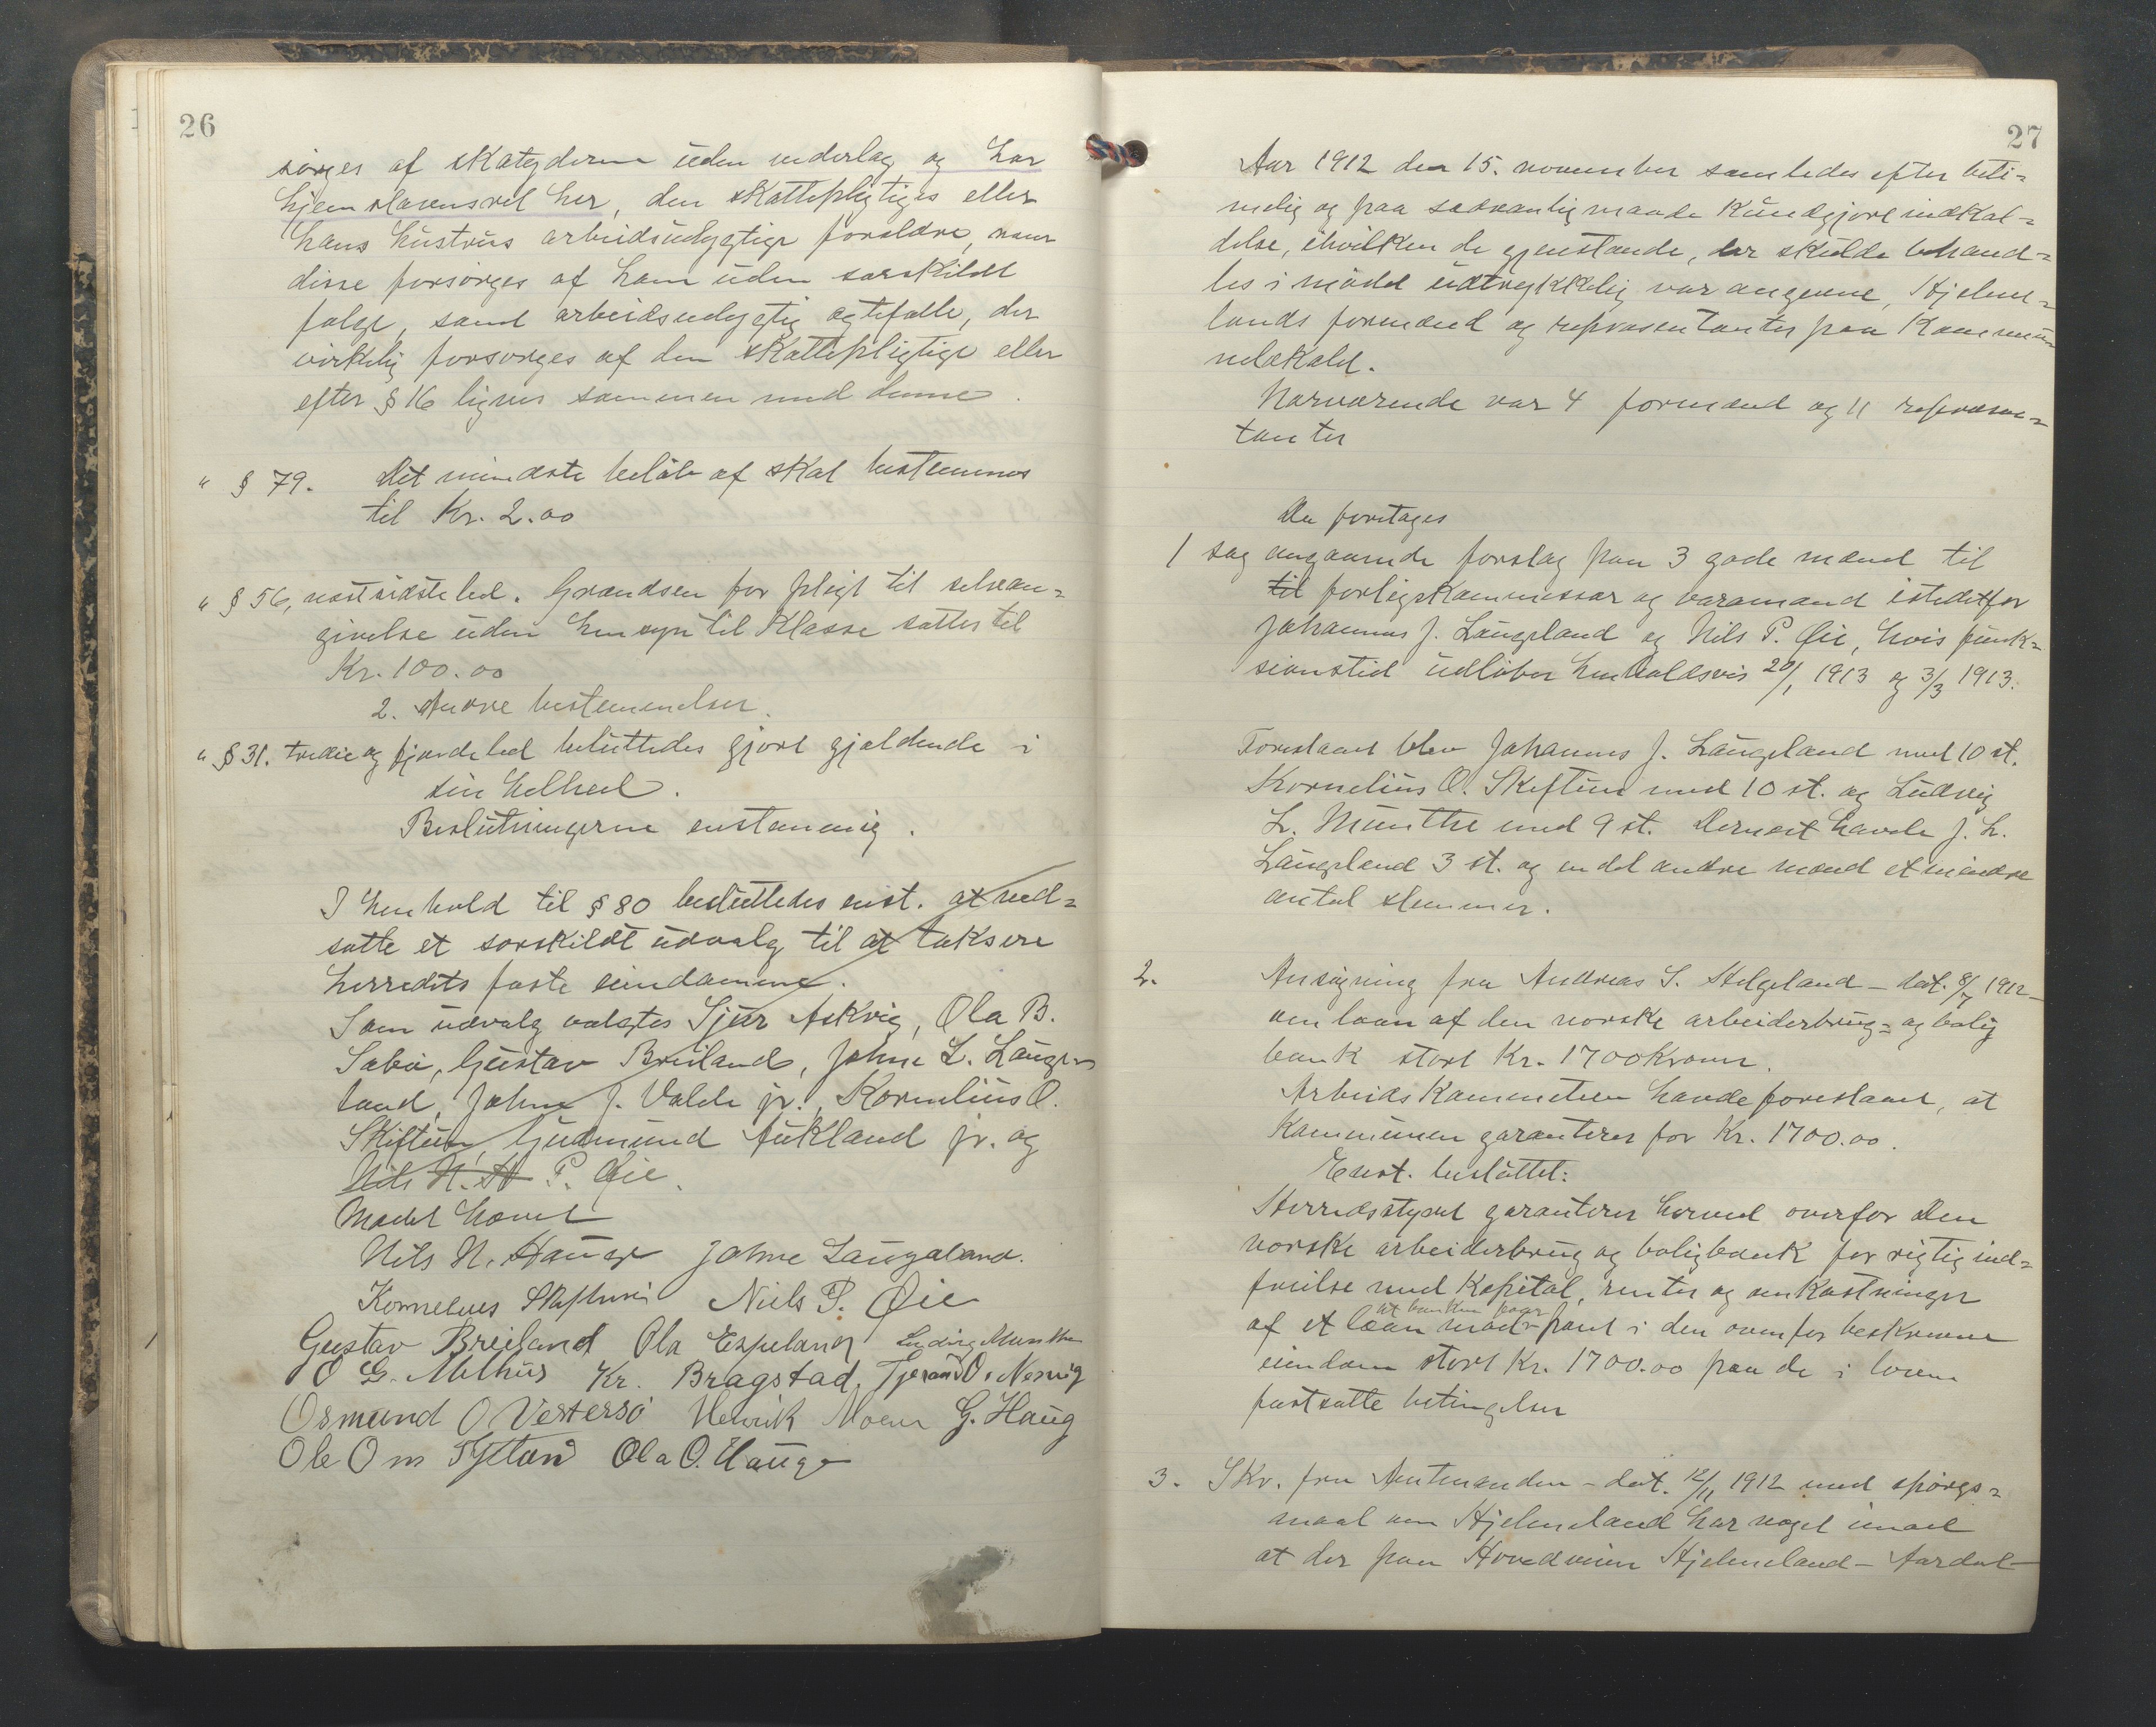 26
sørges af skateyderne uden vederlag og har
hjemstavnsret her, den skattepligtiges eller
hans hustrus arbeidsudygtige forældre, naar
disse forsørges af ham uden særskildt
følge, samt arbeidsudygtig ægtefælle, der
virkelig forsørges af den skattepligtige eller
efter § 16 lignes sammen med denne.
" § 79. Det mindste beløb af skat bestemmes
til Kr. 2.00
" § 56, næstsidste led. Grændsen for pligt til selvan=
givelse uden hensyn til Klasse sættes til
Kr. 100.00
2. Andre bestemmelser.
" § 31. tredie og fjerde led besluttedes gjort gjældende i
sin helhed.
Beslutningerne enstemmig.
I henhold til § 80 besluttedes enst. at ned=
sætte et særskildt udvalg til at taksere
herredets faste eiendomme.
Som udvalg valgtes Sjur Askvig, Ola B.
Sabø, Gustav Breiland, Johne L. Lauge=
land, Johne J. Valde jr., Kornelius O.
Skiftun, Gudmund Aukland jr. og
Nils N. H P. Øie.
Mødet hævet
Nils N. Hauge Johne Laugaland.
Kornelius Skiftun Niels P. Øie
Gustav Breiland Ola Espeland Ludvig Munthe
O G. Melhus Kr. Bragstad. Tjerand O. Nesvig
Osmund O Vestersø Henrik Moen G. Haug
Ole Om Tytland Ola O. Hauge
27
Aar 1912 den 15. november samledes efter beti=
melig og paa sædvanlig maade Kundgjort indkal=
delse, ihvilken de gjenstande, der skulde behand=
les i mødet udtrykkelig var angivne, Hjelme=
lands formænd og repræsentanter paa Kommun
nelokalet.
Nærværende var 4 formænd og 11 repræsen=
tanter
Da foretages
1 sag angaaende forslag paa 3 gode mænd til
til forligskommissær og varamand istedetfor
Johannes J. Laugeland og Nils P. Øie, hvis funk=
sionstid udløber henholdsvis 20/1 1913 og 3/3 1913.
Foreslaaet blev Johannes J. Laugeland med 10 st.
Kornelius O. Skiftun med 10 st. og Ludvig
L. Munthe med 9 st. Dernæst havde J. L.
Laugeland 3 st. og en del andre mænd et mindre
antal stemmer.
2. Ansøgning fra Andreas S. Helgeland – dat. 8/7 1912 –
om laan af den norske arbeiderbrug= og bolig
bank stort Kr. 1700 Kroner.
Arbeidskommiteen havde foreslaaet, at
Kommunen garanterer for Kr. 1700.00.
Enst. besluttet:
Herredsstyret garanterer herved overfor Den
norske arbeiderbrug og boligbank for rigtig ind=
frielse med Kapital, renter og omkostninger
at banken paar
af et laan mod pant i den ovenfor beskrevne
eiendom stort Kr. 1700.00 paa de i loven
fastsatte betingelser
3. Skr. fra Amtmanden – dat. 12/11 1912 med spørgs=
maal om Hjelmeland har noget imod
at der paa Hovedveien Hjelmeland – Aardal –